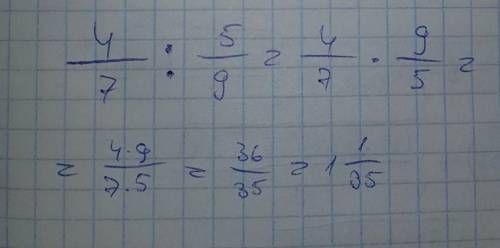 4/7 : 5/9 = 4/7 · 9/5 =
= 4·9/7·5 = 36/35 = 1 1/35